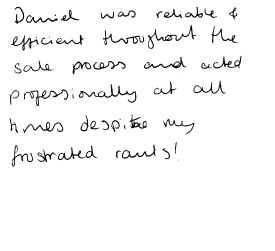 Daniel was reliable &
efficient throughout the
sale process and acted
professionally at all
times despite my
frustrated rants!